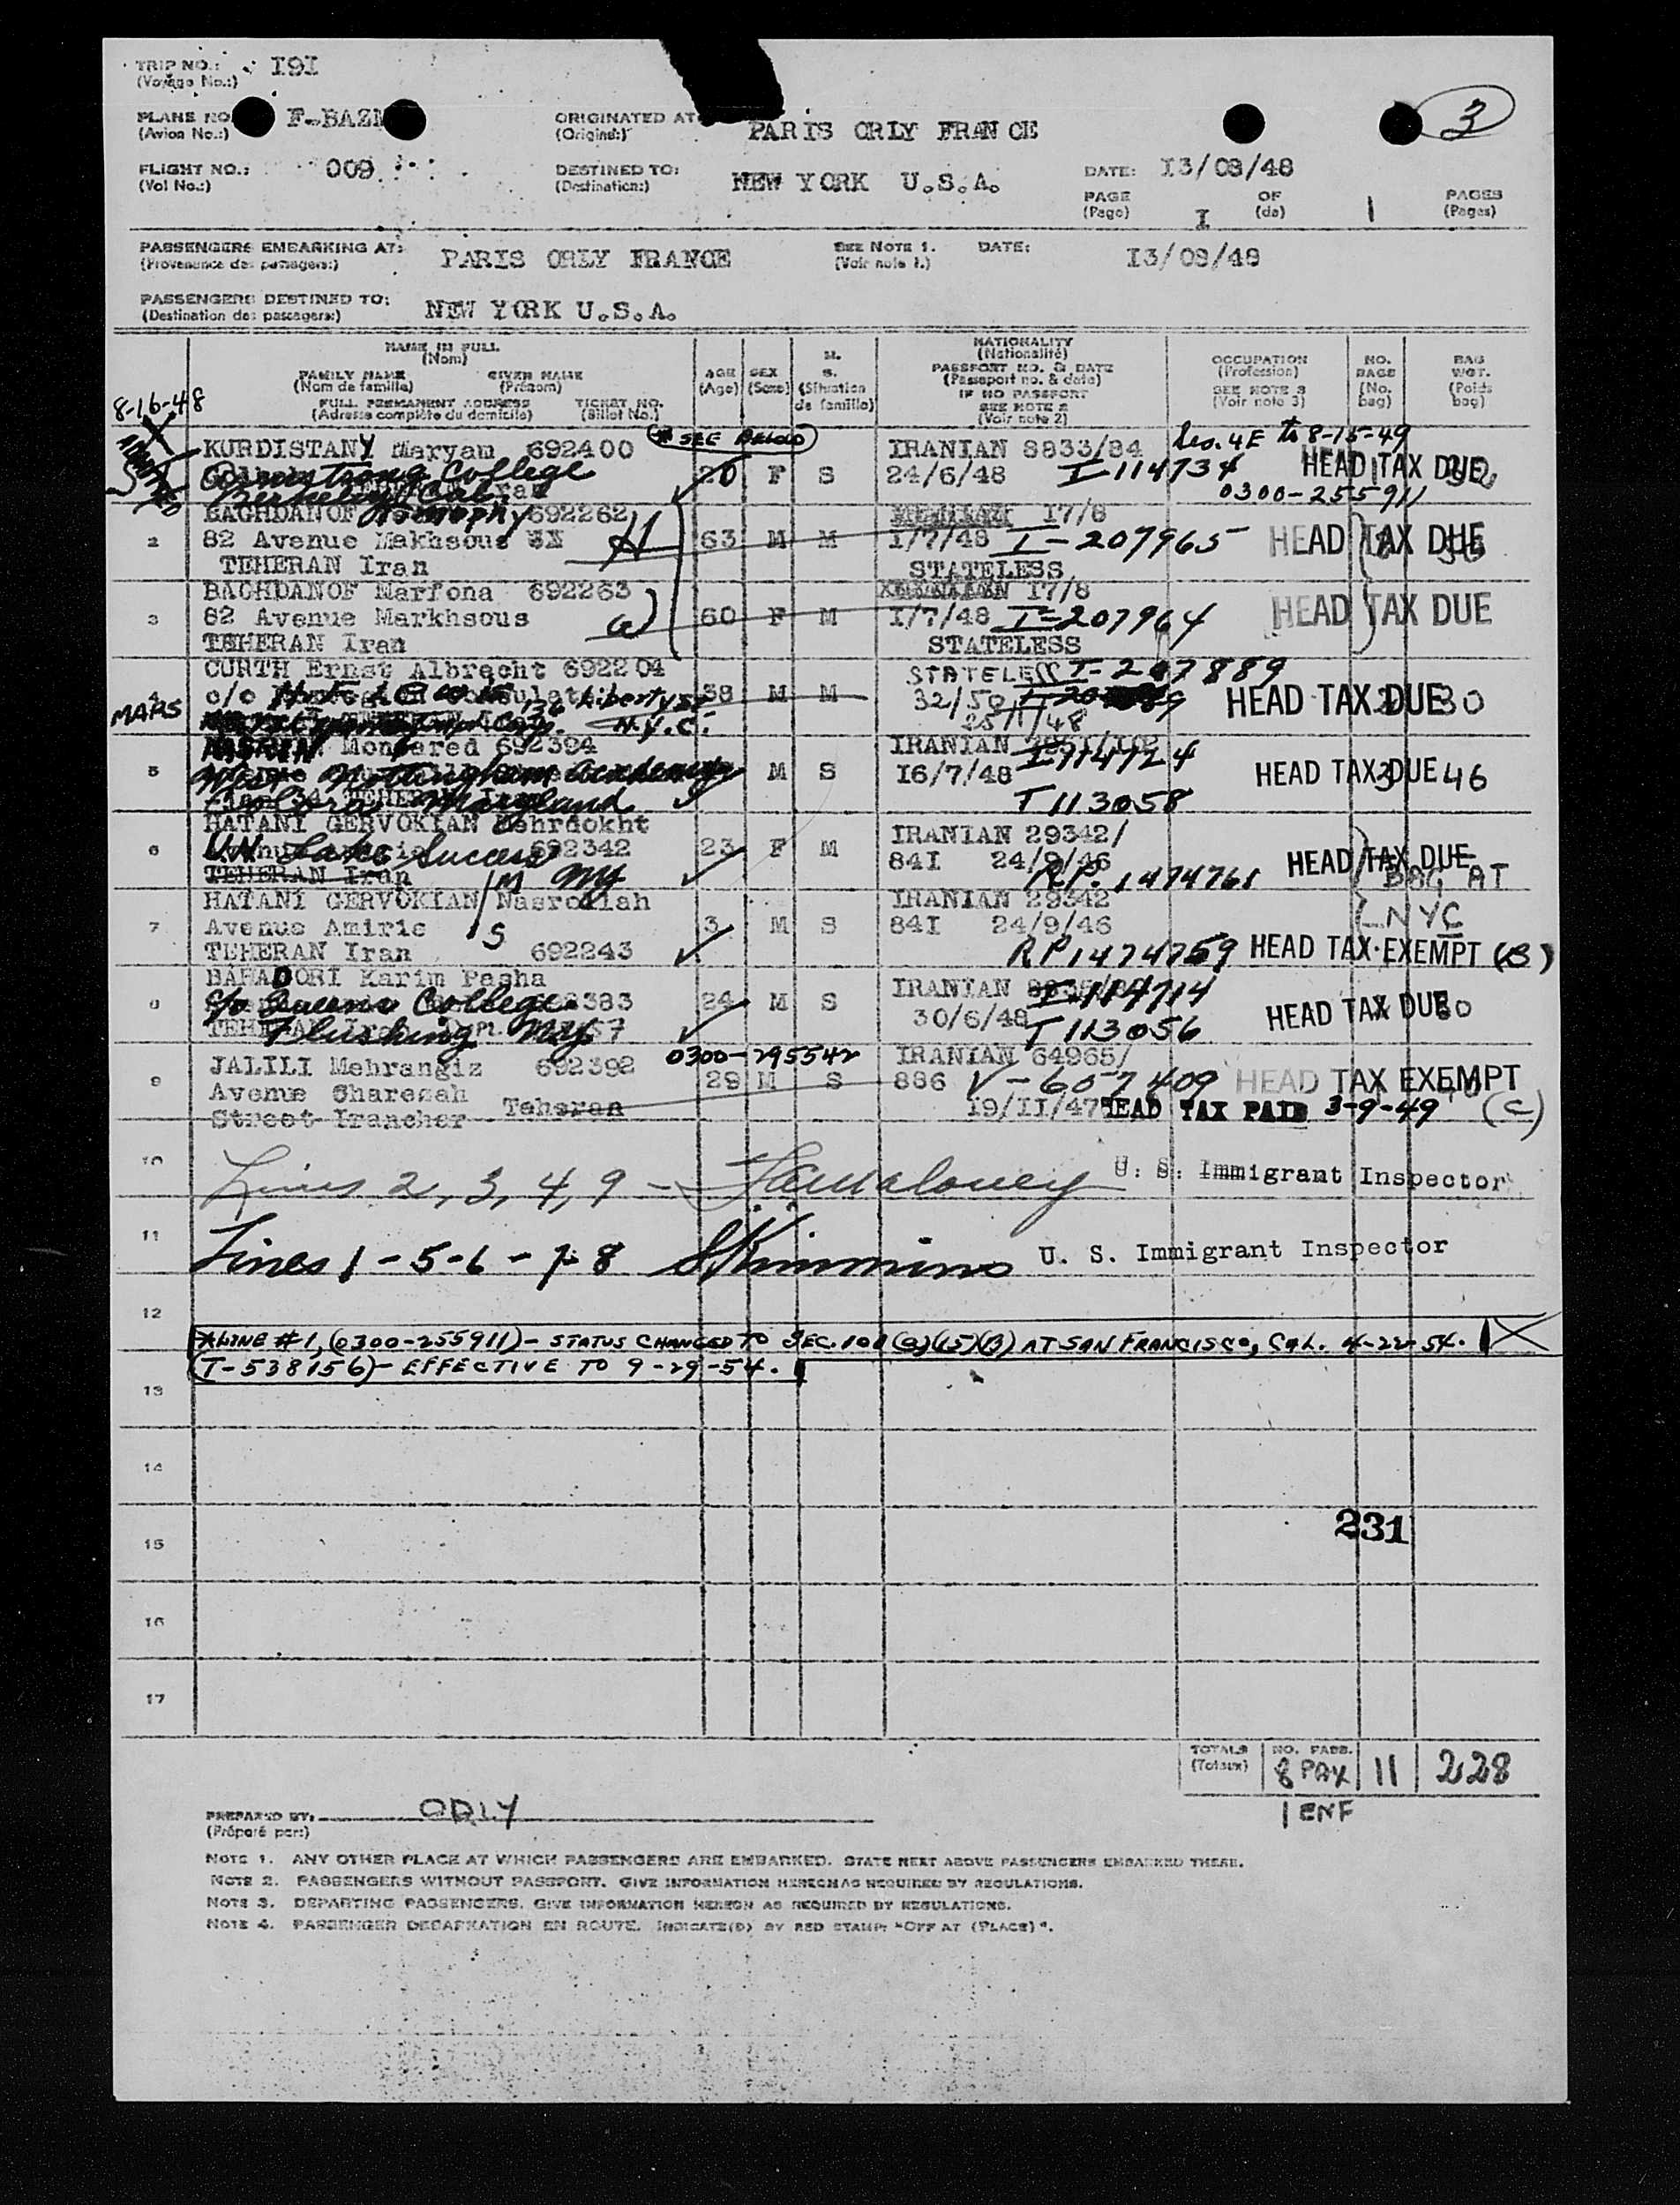 TRIP NO.: I9I
(Voyage No.:)
3
PLANE NO F-BAZ
(Avion No.:)
ORIGINATED AT PARIS ORLY FRANCE
(Origine:)
FLIGHT NO.: 009
(Vol No.:)
DESTINED TO: NEW YORK U.S.A.
(Destination:)
DATE: I3/08/48
PAGE I OF 1 PAGES
(Page) (de) (Pages)
PASSENGERS EMBARKING AT: PARIS ORLY FRANCE
(Provenance des passagers:)
SEE NOTE 1.
(Voir note 1.)
DATE: I3/08/48
PASSENGERS DESTINED TO: NEW YORK U.S.A.
(Destination des passagers:)
NAME IN FULL
(Nom)
FAMILY NAME GIVEN NAME
(Nom de famille) (Prénom)
FULL PERMANENT ADDRESS TICKET NO.
(Adresse complète du domicile) (Billet No.)
AGE
(Age)
SEX
(Sexe)
M.
S.
(Situation
de famille)
NATIONALITY
(Nationalité)
PASSPORT NO. & DATE
(Passeport no. & date)
IF NO PASSPORT
SEE NOTE 2
(Voir note 2)
OCCUPATION
(Profession)
SEE NOTE 3
(Voir note 3)
NO.
BAGS
(No.
bag)
BAG
WGT.
(Poids
bag)
8-16-48
KURDISTANY Maryam 692400 * SEE BELOW IRANIAN 8833/84 to 8-15-49
Armstrong College 20 F S 24/6/48 I-114734 HEAD TAX DUE
Berkeley Cal. 0300-255911
BAGHDANOF 692262 I7/8
2 82 Avenue Makhsous H 63 M M I/7/48 I-207965 HEAD TAX DUE
TEHERAN Iran STATELESS
BAGHDANOF Marfona 692263 I7/8
3 82 Avenue Markhsous W 60 F M I/7/48 I-207964 HEAD TAX DUE
TEHERAN Iran STATELESS
CURTH Ernst Albrecht 692204 STATELESS I-207889
4 c/o 136 Liberty St 38 M M 32/50 HEAD TAX DUE 30
MARS N.Y.C. 25/II/48
692394 IRANIAN I114724
5 West Nottingham Academy M S I6/7/48 HEAD TAX DUE 3 46
Maryland T 113058
HATANI GERVOKIAN Mehrdokht IRANIAN 29342/
6 U.N. Lake Success 692342 23 F M 84I 24/9/46 HEAD TAX DUE
TEHERAN Iran M NY R.P. 1474761 BAG AT
HATANI GERVOKIAN Nasrollah IRANIAN 29342
7 Avenue Amirie S 3 M S 84I 24/9/46 NYC
TEHERAN Iran 692243 RP 1474759 HEAD TAX EXEMPT (B)
BAHADORI Karim Pasha IRANIAN I-114714
8 c/o Queens College 24 M S 30/6/48 HEAD TAX DUE
Flushing NY T 113056
0300-295542
JALILI Mehrangiz 692392 IRANIAN 64965/
9 Avenue Sharezah 29 M S 886 V-607409 HEAD TAX EXEMPT
Street Irancher Teheran 19/II/47 HEAD TAX PAID 3-9-49 (C)
10 Lines 2, 3, 4, 9 - U. S. Immigrant Inspector
11 Lines 1-5-6-7-8 U. S. Immigrant Inspector
12
*LINE #1, (0300-255911) - STATUS CHANGED TO SEC.101(a)(15)(B) AT SAN FRANCISCO, CAL. 4-22-54.
(T-538156) - EFFECTIVE TO 9-29-54.
13
14
231
15
16
17
TOTALS NO. PASS.
(Totaux) 8 PAX 11 228
1 ENF
PREPARED BY: ORLY
(Préparé par:)
NOTE 1. ANY OTHER PLACE AT WHICH PASSENGERS ARE EMBARKED. STATE NEXT ABOVE PASSENGERS EMBARKED THERE.
NOTE 2. PASSENGERS WITHOUT PASSPORT. GIVE INFORMATION HEREON AS REQUIRED BY REGULATIONS.
NOTE 3. DEPARTING PASSENGERS. GIVE INFORMATION HEREON AS REQUIRED BY REGULATIONS.
NOTE 4. PASSENGER DEBARKATION EN ROUTE. INDICATE(D) BY RED STAMP: "OFF AT (PLACE)".